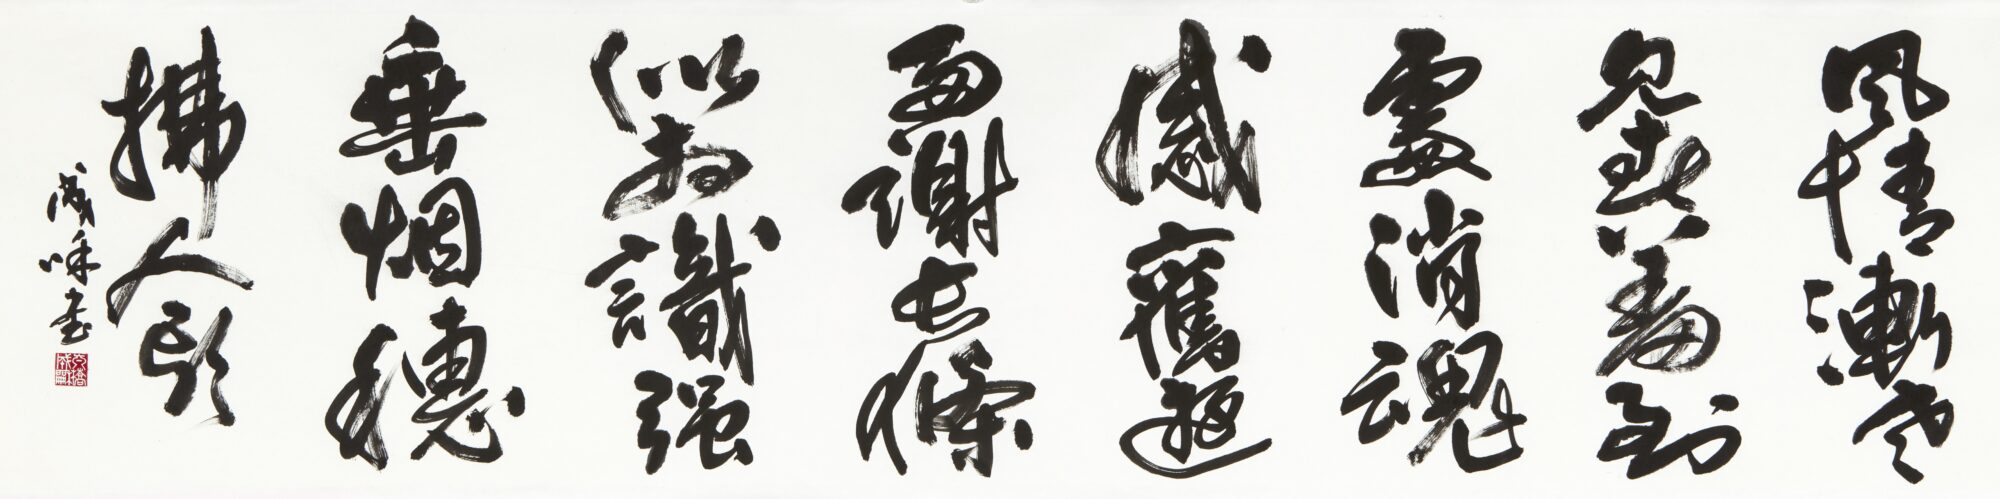 風情漸老
見春羞到
處消魂
感舊遊
多謝長條
似相識强
垂烟穗
拂人頭
書